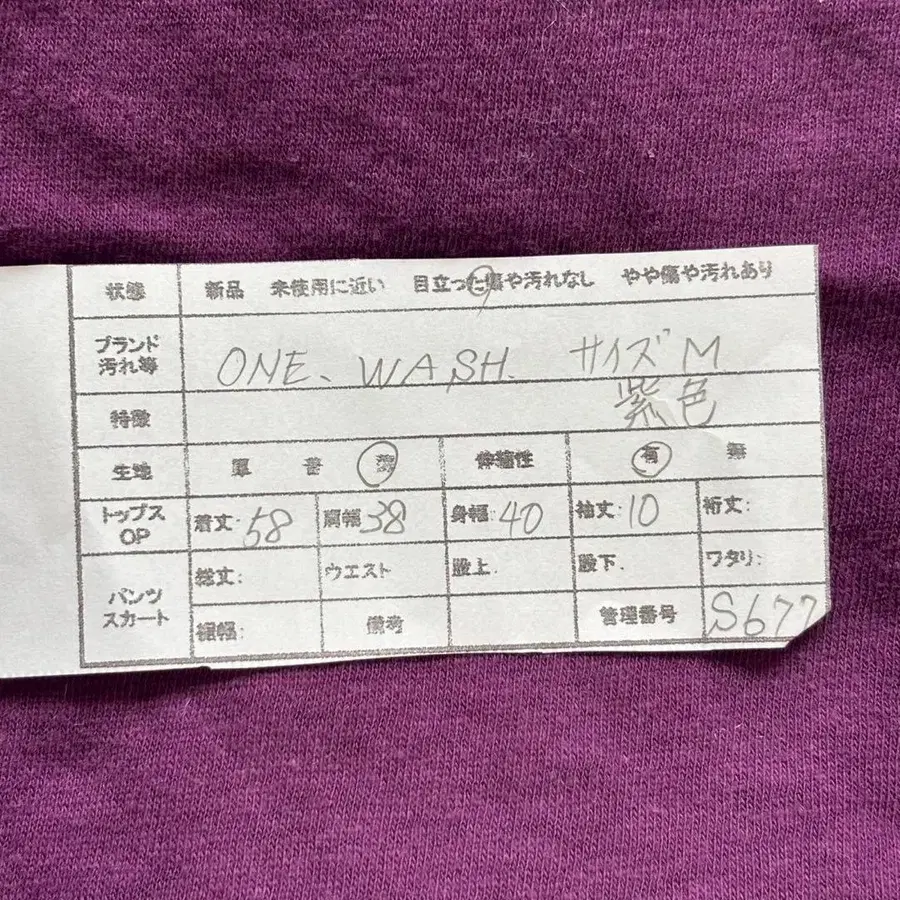 状態 新品 未使用に近い 目立った傷や汚れなし やや傷や汚れあり
ブランド 汚れ等 ONE、WASH. サイズM
特徴 紫色
生地 厚 普 薄 伸縮性 有 無
トップス OP 着丈:58 肩幅38 身幅:40 袖丈:10 裄丈:
パンツ スカート 総丈: ウエスト 股上. 股下. ワタリ:
裾幅: 備考 管理番号 S677